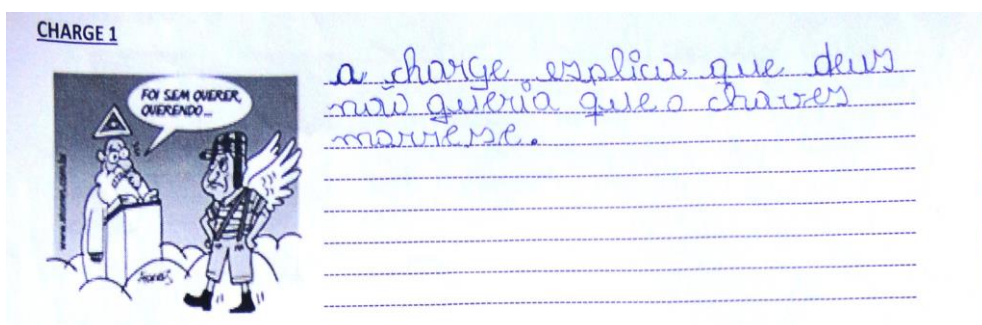 CHARGE 1
FOI SEM QUERER,
QUERENDO...
a charge explica que deus
não queria que o chaves
morresse.